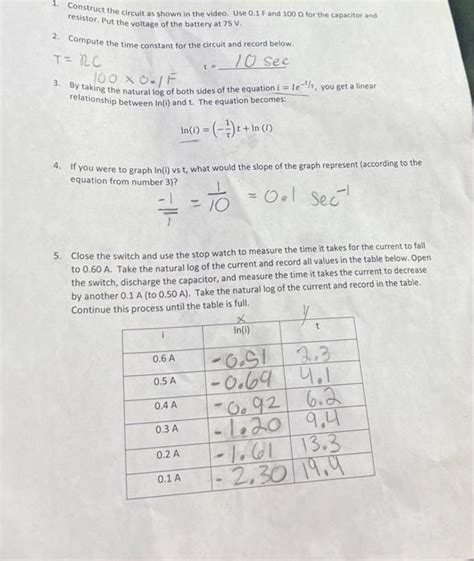 1. Construct the circuit as shown in the video. Use 0.1 F and 100 Ω for the capacitor and
resistor. Put the voltage of the battery at 75 V.
2. Compute the time constant for the circuit and record below.
T = RC
τ = 10 sec
100 x 0.1F
3. By taking the natural log of both sides of the equation i = Ie^-t/τ, you get a linear
relationship between ln(i) and t. The equation becomes:
ln(i) = (-1/τ)t + ln(I)
4. If you were to graph ln(i) vs t, what would the slope of the graph represent (according to the
equation from number 3)?
-1/T = 1/10 = 0.1 sec^-1
5. Close the switch and use the stop watch to measure the time it takes for the current to fall
to 0.60 A. Take the natural log of the current and record all values in the table below. Open
the switch, discharge the capacitor, and measure the time it takes the current to decrease
by another 0.1 A (to 0.50 A). Take the natural log of the current and record in the table.
Continue this process until the table is full.
x y
i ln(i) t
0.6 A -0.51 2.3
0.5 A -0.69 4.1
0.4 A -0.92 6.2
0.3 A -1.20 9.4
0.2 A -1.61 13.3
0.1 A -2.30 19.9